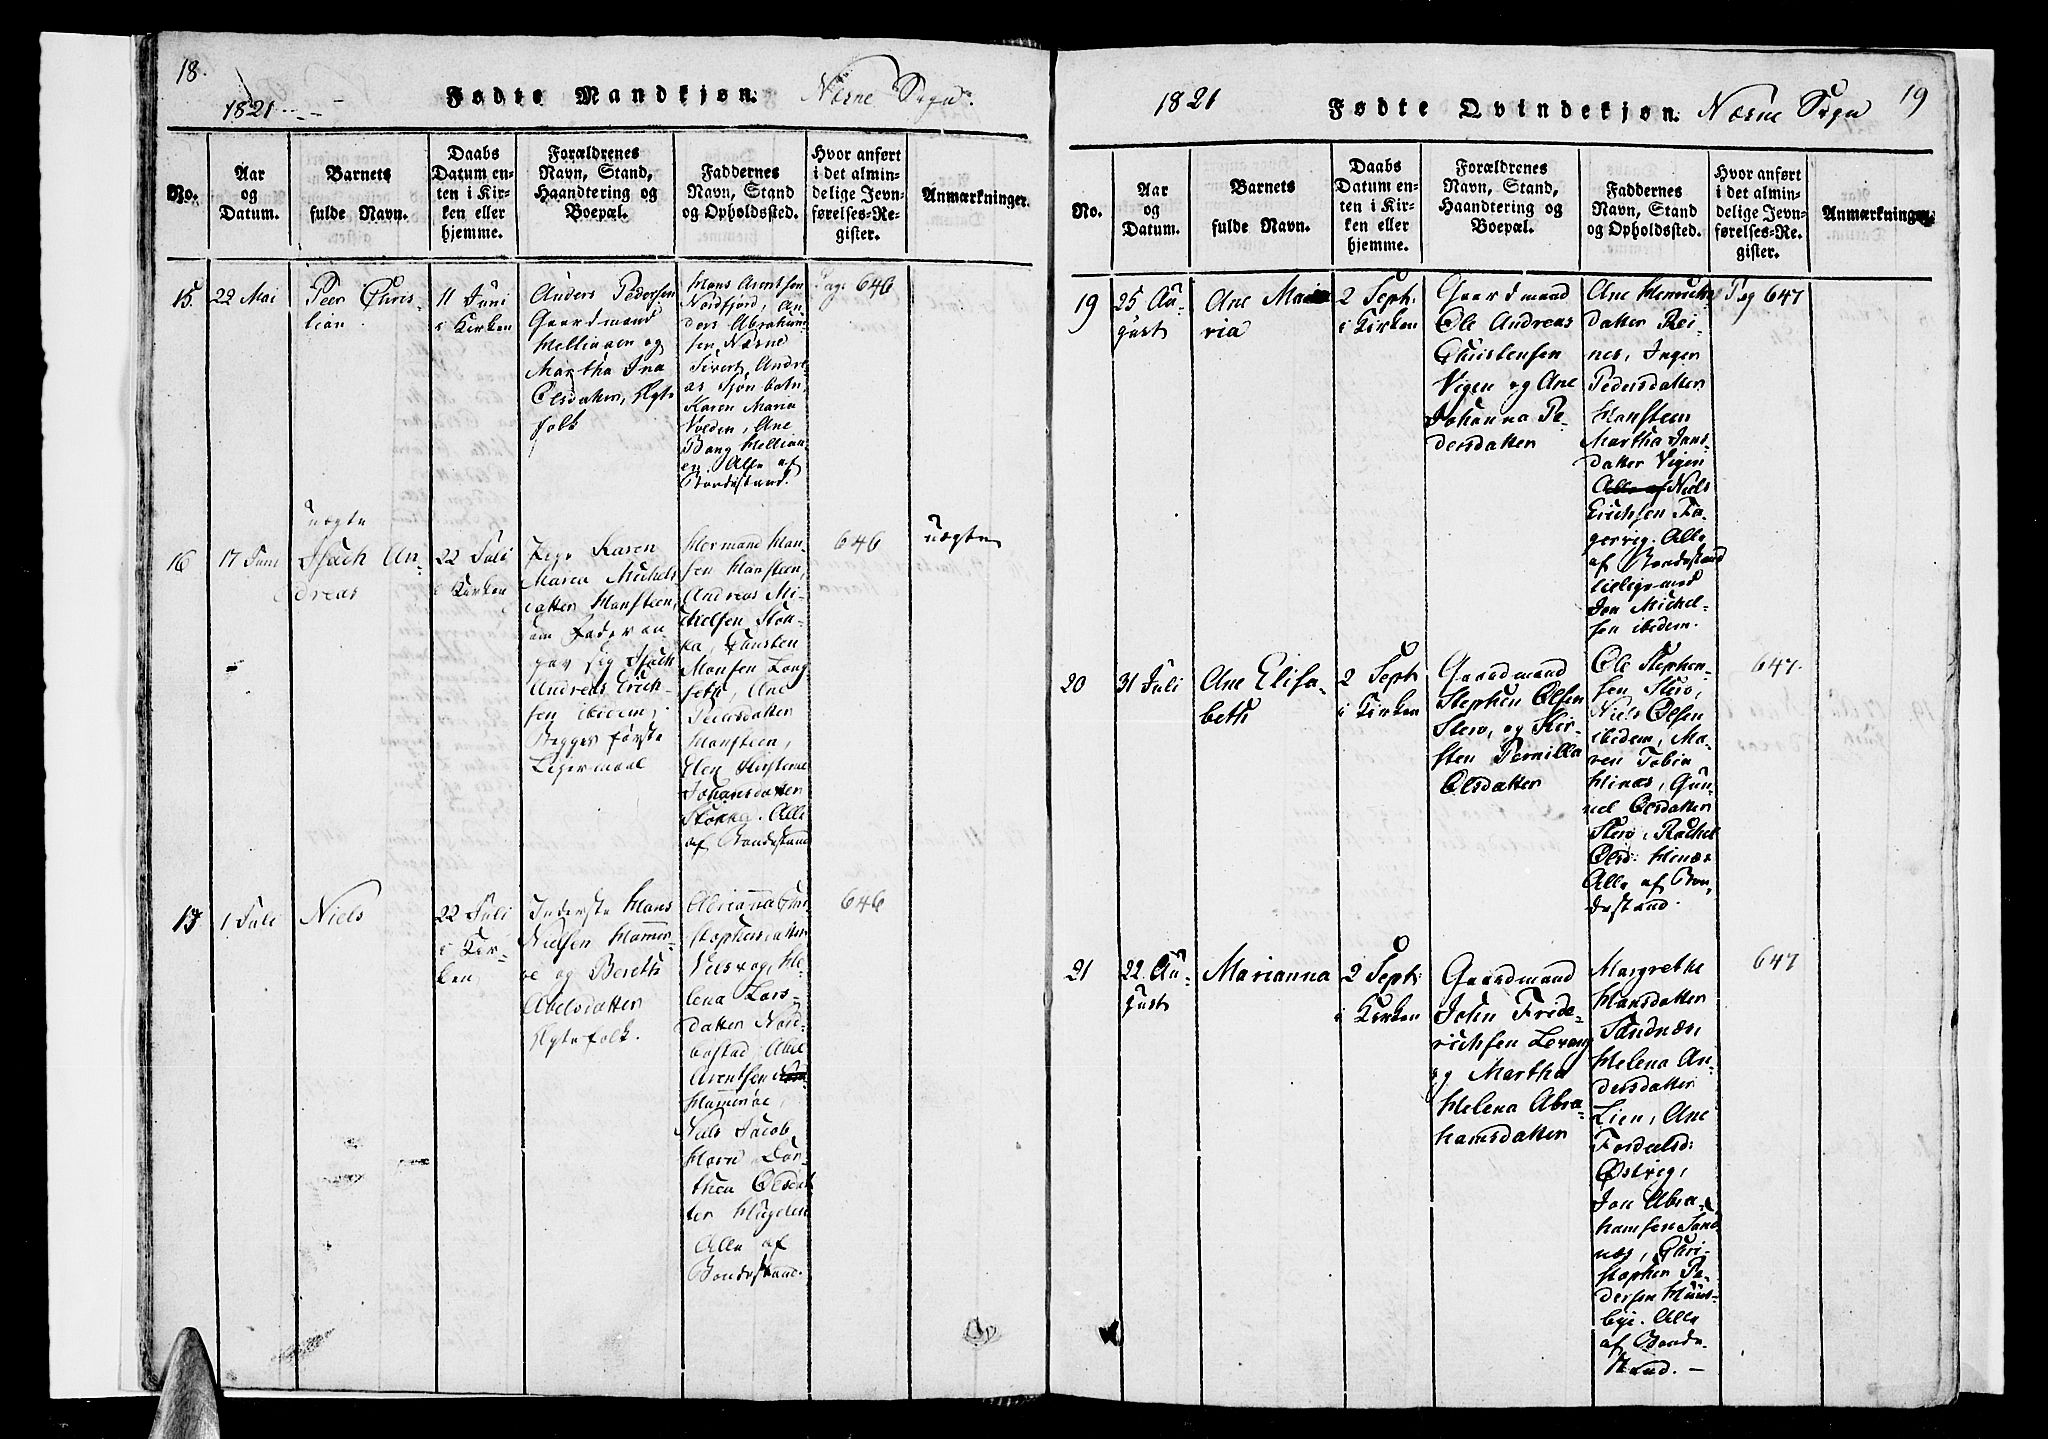 18.
1821
Fødte Mandkjøn.
Næsne Sogn.
No.
Aar
og
Datum.
Barnets
fulde Navn.
Daabs
Datum en-
ten i Kir-
ken eller
hjemme.
Forældrenes
Navn, Stand,
Haandtering og
Boepæl.
Faddernes
Navn, Stand
og Opholdssted.
Hvor anført
i det almin-
delige Jevn-
førelses-Re-
gister.
Anmærkninger
15.
22 Mai
Peer Chris-
tian
11 Juni
i Kirken
Anders Pedersen
Gaardmand
og
Martha
Olsdatter, Ægte
folk
Hans Arentsen
Nordfjord, An-
ders Abraham-
sen Næsne
Sivert Andre-
as Sjønbotn
Karen Maria
Volden, Ane
Bang
Alle af
Bondestand.
Pag. 646
16
17 Juni
uægte
Isach An-
dreas
22 Juli
i Kirken
Pige Karen
Maren Michels
datter Hansteen,
som Fader an-
gav sig Isach
Andreas Erich-
sen ibidem.
Begges første
Leiermaal
Hermand Han-
sen Hansteen,
Andreas Mi-
chelsen
Christen
Monsen Lang
seth, Ane
Pedersdatter
Hansteen,
Elen
Johansdatter
Alle
af Bondestand
646
uægte
17
1 Juli
Niels
22 Juli
i Kir-
ken
Inderste Hans
Nielsen Hamer-
øe og Bereth
Abelsdatter
Ægtefolk.
Adrianna Chri-
stophersdatter
He-
lena Lars-
datter Nord-
bostad, Abel
Arentsen
Hammerøe,
Niels Jacob
Horn Dor-
thea Olsdat
ter Hugelen
Alle af
Bondestand.
646
1821
Fødte Qvindekjøn.
Næsne Sogn
19
No.
Aar
og
Datum.
Barnets
fulde Navn.
Daabs
Datum en-
ten i Kir-
ken eller
hjemme.
Forældrenes
Navn, Stand,
Haandtering og
Boepæl.
Faddernes
Navn, Stand
og Opholdssted.
Hvor anført
i det almin-
delige Jevn-
førelses-Re-
gister.
Anmærkninger
19
25 Au-
gust
Ane Ma
ria
2 Sept:
i Kirken
Gaardmand
Ole Andreas
Christensen
Vigen og Ane
Johanna Pe-
dersdatter
Ane Henrichs
datter Rei-
nes, Inger
Pedersdatter
Hansteen
Martha Jans-
datter Vigen
Alle af Niels
Erichsen Fa-
gervig. Alle
af Bondestand
tilligemed
Jon Michel-
sen ibidem.
Pag 647
20
31 Juli
Ane Elisa-
beth
2 Sept:
i Kirken
Gaardmand
Stephen Olsen
og Kir-
sten Pernilla
Olsdatter
Ole Stephen-
sen
Niels Olsen
ibidem, Ma-
ren Tobia
Hinæs, Gun-
nel Olsdatter
Rachel
Olsd: Hinæs
Alle af Bon-
destand.
647.
21
22 Au-
gust
Marianna
2 Sept:
i Kirken
Gaardmand
John Fride-
richsen Levang
og Martha
Helena Abra-
hamsdatter
Margrethe
Hansdatter
Sandnæs
Helena An-
dersdatter
Lien, Ane
Fordelsd:
Østvig,
Jon Abra-
hamsen Sand
næs, Chri-
stopher Pe-
dersen Huus-
bye. Alle
af Bonde
stand. —
647